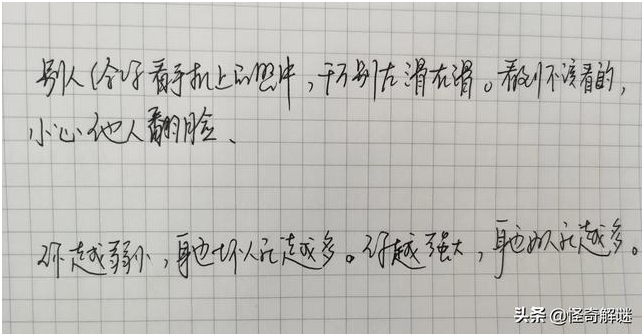 别人给你看手机上的照片，千万别左滑右滑。看到不该看的，
小心他人翻脸、
你越弱小，身边坏人就越多。你越强大，身边好人就越多。
头条 @怪奇解谜